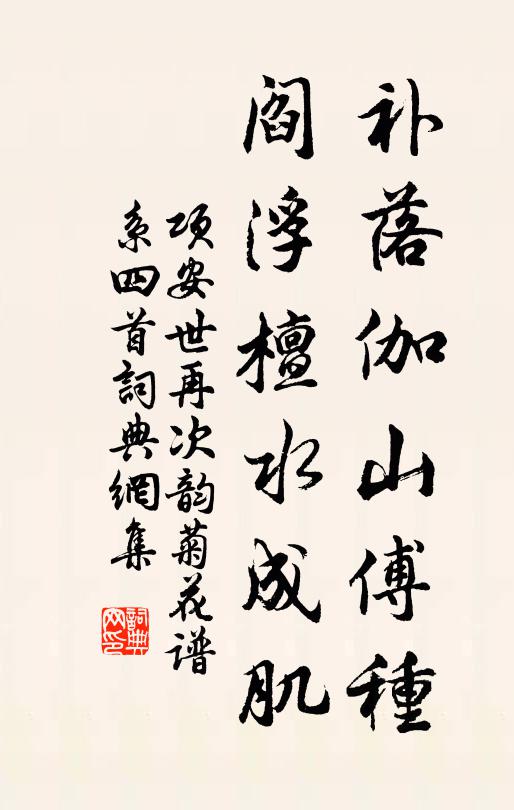 补落伽山傅種
阎浮檀水成肌
项安世再次韵菊花谱
系四首詞典網集
詞典網印